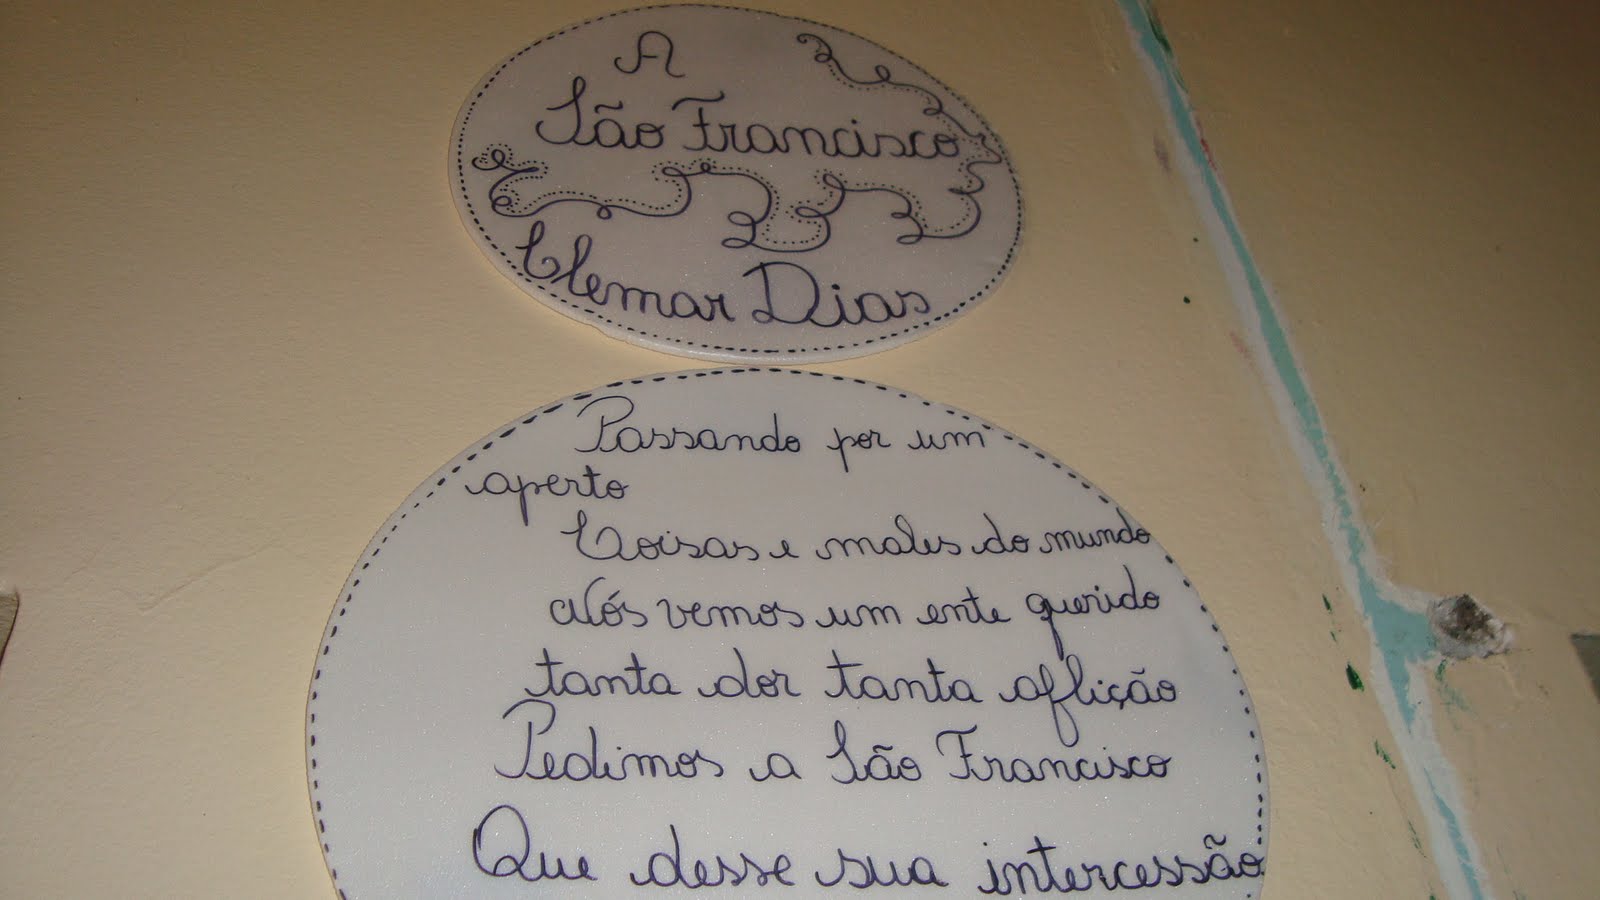 A
São Francisco
Clemar Dias
Passando por um
aperto
Coisas e males do mundo
Nós vemos um ente querido
tanta dor tanta aflição
Pedimos a São Francisco
Que desse sua intercessão